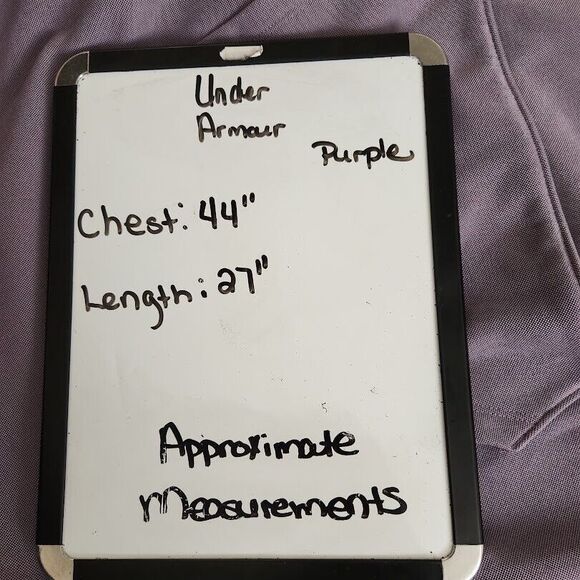 Under
Armour
Purple
Chest: 44"
Length: 27"
Approximate
Measurements